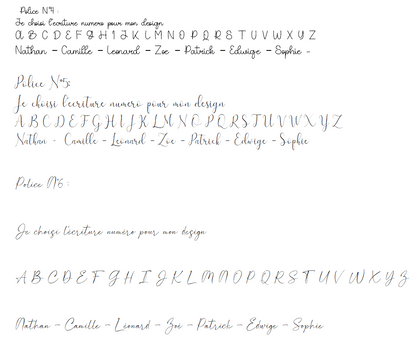 Police N°4 :
Je choisi l'écriture numéro pour mon design
A B C D E F G H I J K L M N O P Q R S T U V W X Y Z
Nathan - Camille - Leonard - Zoe - Patrick - Edwige - Sophie -
Police N°5:
Je choisi l'écriture numéro pour mon design
A B C D E F G H I J K L M N O P Q R S T U V W X Y Z
Nathan - Camille - Léonard - Zoe - Patrick - Edwige - Sophie
Police N°6 :
Je choisi l'écriture numéro pour mon design
A B C D E F G H I J K L M N O P Q R S T U V W X Y Z
Nathan - Camille - Léonard - Zoé - Patrick - Edwige - Sophie